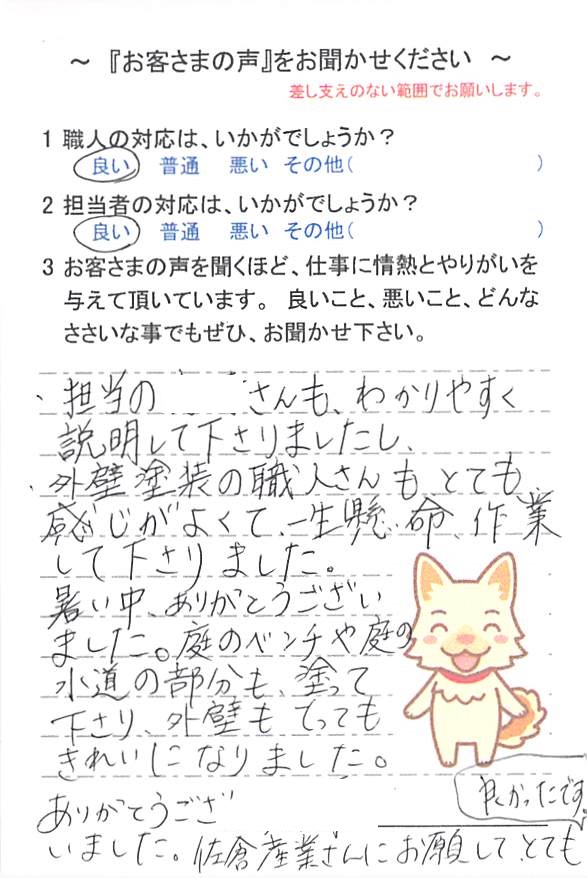 ～ 『お客さまの声』をお聞かせください ～
差し支えのない範囲でお願いします。
1 職人の対応は、いかがでしょうか？
良い 普通 悪い その他( )
2 担当者の対応は、いかがでしょうか？
良い 普通 悪い その他( )
3 お客さまの声を聞くほど、仕事に情熱とやりがいを
与えて頂いています。 良いこと、悪いこと、どんな
ささいな事でもぜひ、お聞かせ下さい。
、担当の さんも、わかりやすく
説明して下さりましたし、
、外壁塗装の職人さんも、とても、
感じがよくて、一生懸命、作業
して下さりました。
暑い中、ありがとうござい
ました。庭のベンチや庭の
水道の部分も、塗って
下さり、外壁もとっても
きれいになりました。
ありがとうござ
いました。佐倉産業さんにお願して、とても
良かったです。